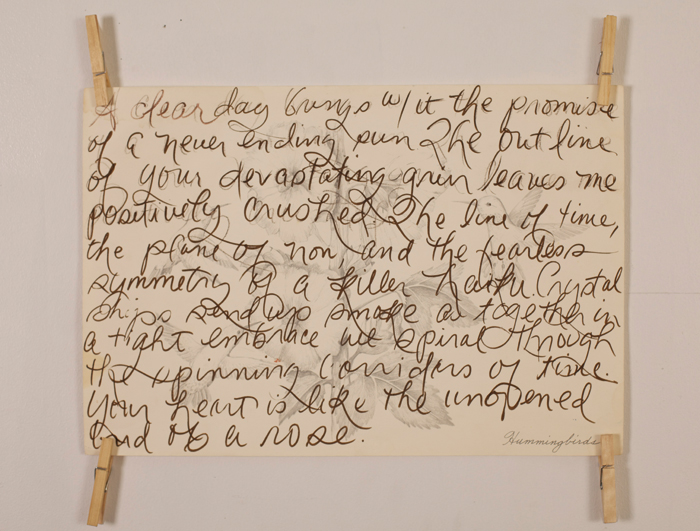 A clear day brings w/ it the promise
of a never ending sun The outline
of your devastating grin leaves me
positively crushed. The line of time,
the plane of now, and the fearless
symmetry of a killer haiku. Crystal
ships send up smoke as together in
a tight embrace we spiral through
the spinning corridors of time.
Your heart is like the unopened
bud of a rose.
Hummingbirds